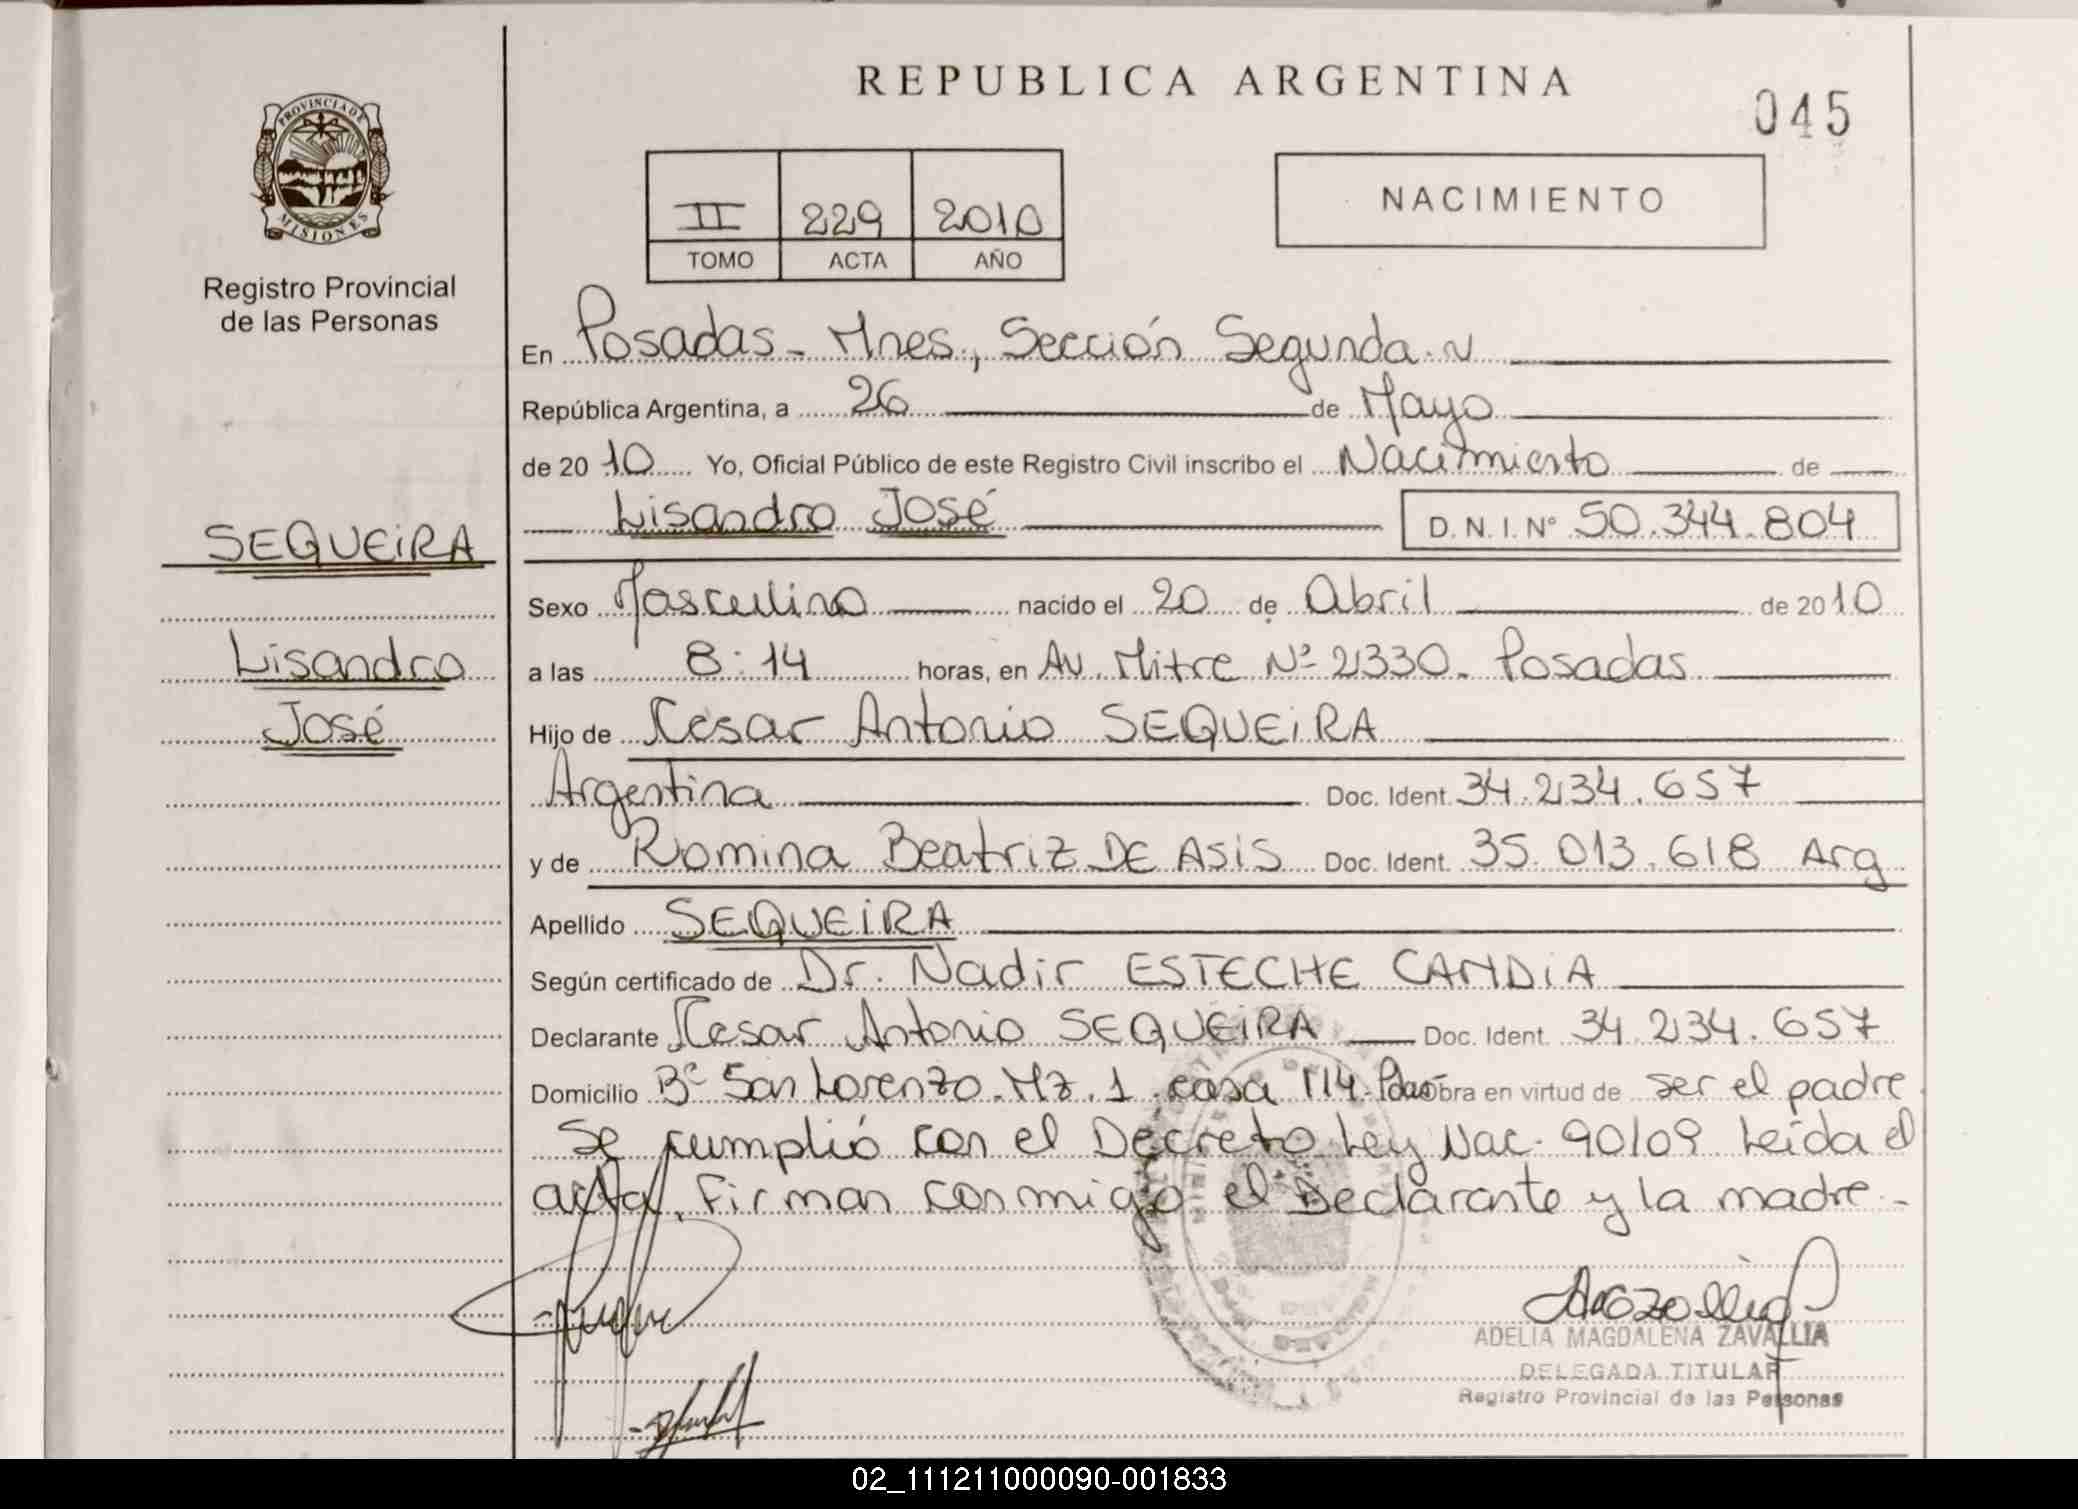 REPUBLICA ARGENTINA
045
PROVINCIA DE
MISIONES
Registro Provincial
de las Personas
II 229 2010
TOMO ACTA AÑO
NACIMIENTO
En Posadas - Mnes., Sección Segunda
República Argentina, a 26 de Mayo
de 2010 Yo, Oficial Público de este Registro Civil inscribo el Nacimiento de
Lisandro José D.N.I.Nº 50.344.804
SEQUEiRA
Lisandro
José
Sexo Masculino nacido el 20 de Abril de 2010
a las 8:14 horas, en Av. Mitre Nº 2330. Posadas
Hijo de Cesar Antonio SEQUEiRA
Argentina Doc. Ident. 34.234.657
y de Romina Beatriz DE ASiS Doc. Ident. 35.013.618 Arg
Apellido SEQUEiRA
Según certificado de Dr. Nadir ESTECHE CANDiA
Declarante Cesar Antonio SEQUEiRA Doc. Ident. 34.234.657
Domicilio Bº San Lorenzo. Mz. 1. casa 114. obra en virtud de ser el padre
Se cumplió con el Decreto Ley Nac. 90/09 Leída el
acta, Firman conmigo el Declarante y la madre.-
ADELIA MAGDALENA ZAVALLIA
DELEGADA TITULAR
Registro Provincial de las Personas
02_111211000090-001833